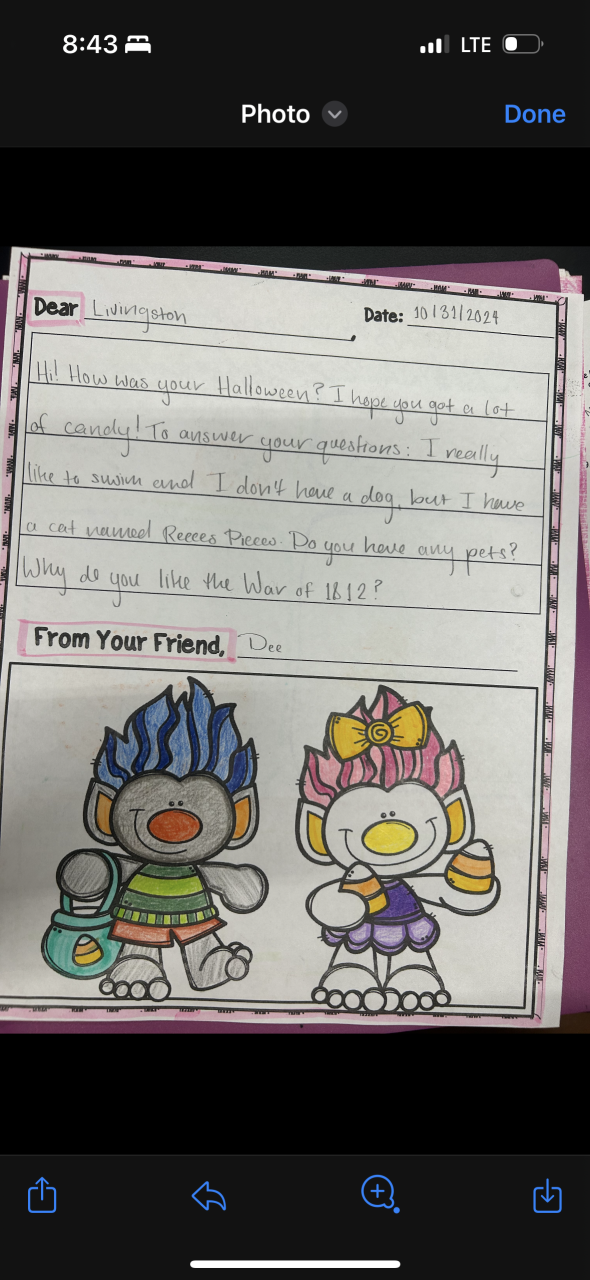 8:43
LTE
Photo
Done
Dear Livingston,
Date: 10/31/2024
Hi! How was your Halloween? I hope you got a lot
of candy! To answer your questions: I really
like to swim and I don't have a dog, but I have
a cat named Reeces Pieces. Do you have any pets?
Why do you like the War of 1812?
From Your Friend, Dee